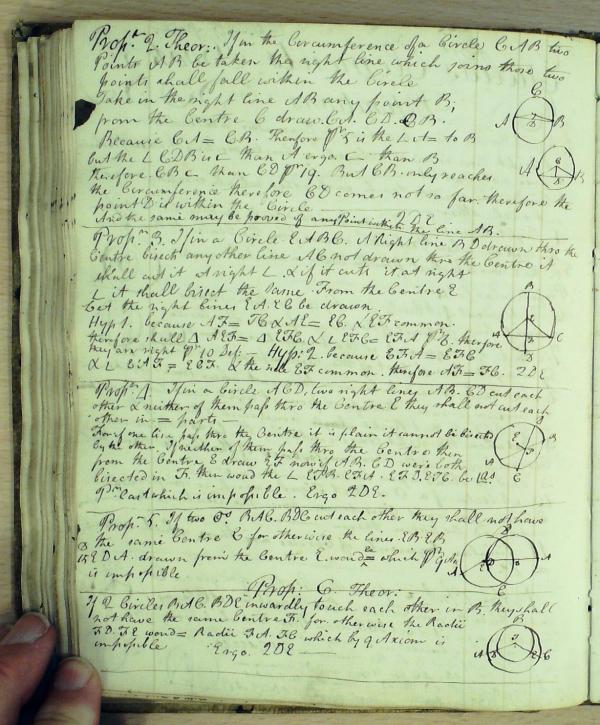 Propn. 2. Theor: If in the Circumference of a Circle CAB two
Points AB be taken the right line which joins those two
points shall fall within the Circle
Take in the right line AB any point D;
from the Centre C draw CA. CD. CB.
Because CA = CB. Therefore Pr 5 is the L A = to B
but the L CDB is than A ergo than B
therefore CB than CD Pr 19. But CB only reaches
the Circumference therefore CD comes not so far. therefore the
point D is within the Circle
And the same may be proved of any Point in the line AB. QDE
Propn. 3. If in a Circle EABC. A Right line BD drawn thro the
Centre bisect any other line AC not drawn thro the Centre it
shall cut it at right L. & if it cuts it at right
L it shall bisect the same. From the Centre E
Let the right lines EA. EC be drawn
Hyp 1. because AF = FC & AE = EC. & EF common.
therefore shall Δ AEF = Δ EFC. & L EFC = EFA Pr 8. therefore
they are right Pr 10 Def. Hyp: 2. because EFA = EFC
& L EAF = ECF. & the side EF common. therefore AF = FC. QDE
Propn. 4. If in a Circle ACD, two right lines AB. CD cut each
other & neither of them pass thro the Centre E they shall not cut each
other in = parts
For if one line pass thro the Centre it is plain it cannot be bisected
by the other. If neither of them pass thro the Centre then
from the Centre E draw EF now if AB. CD were both
bisected in F. then woud the L EFB. EFA. EFD. EFC. be
Pr last which is impossible. Ergo QDE.
Propn. 5. If two BAC. BDC cut each other they shall not have
the same Centre E for otherwise the lines EB
EDA. drawn from the Centre E. woud be = which Pr 9 Ax
is impossible
Prop: 6. Theor:
If 2 Circles BAC. BDE inwardly touch each other in B. they shall
not have the same Centre F. for otherwise the Radii
FD. FE woud = Radii FA. FC which by 9 Axiom is
impossible Ergo. QDE